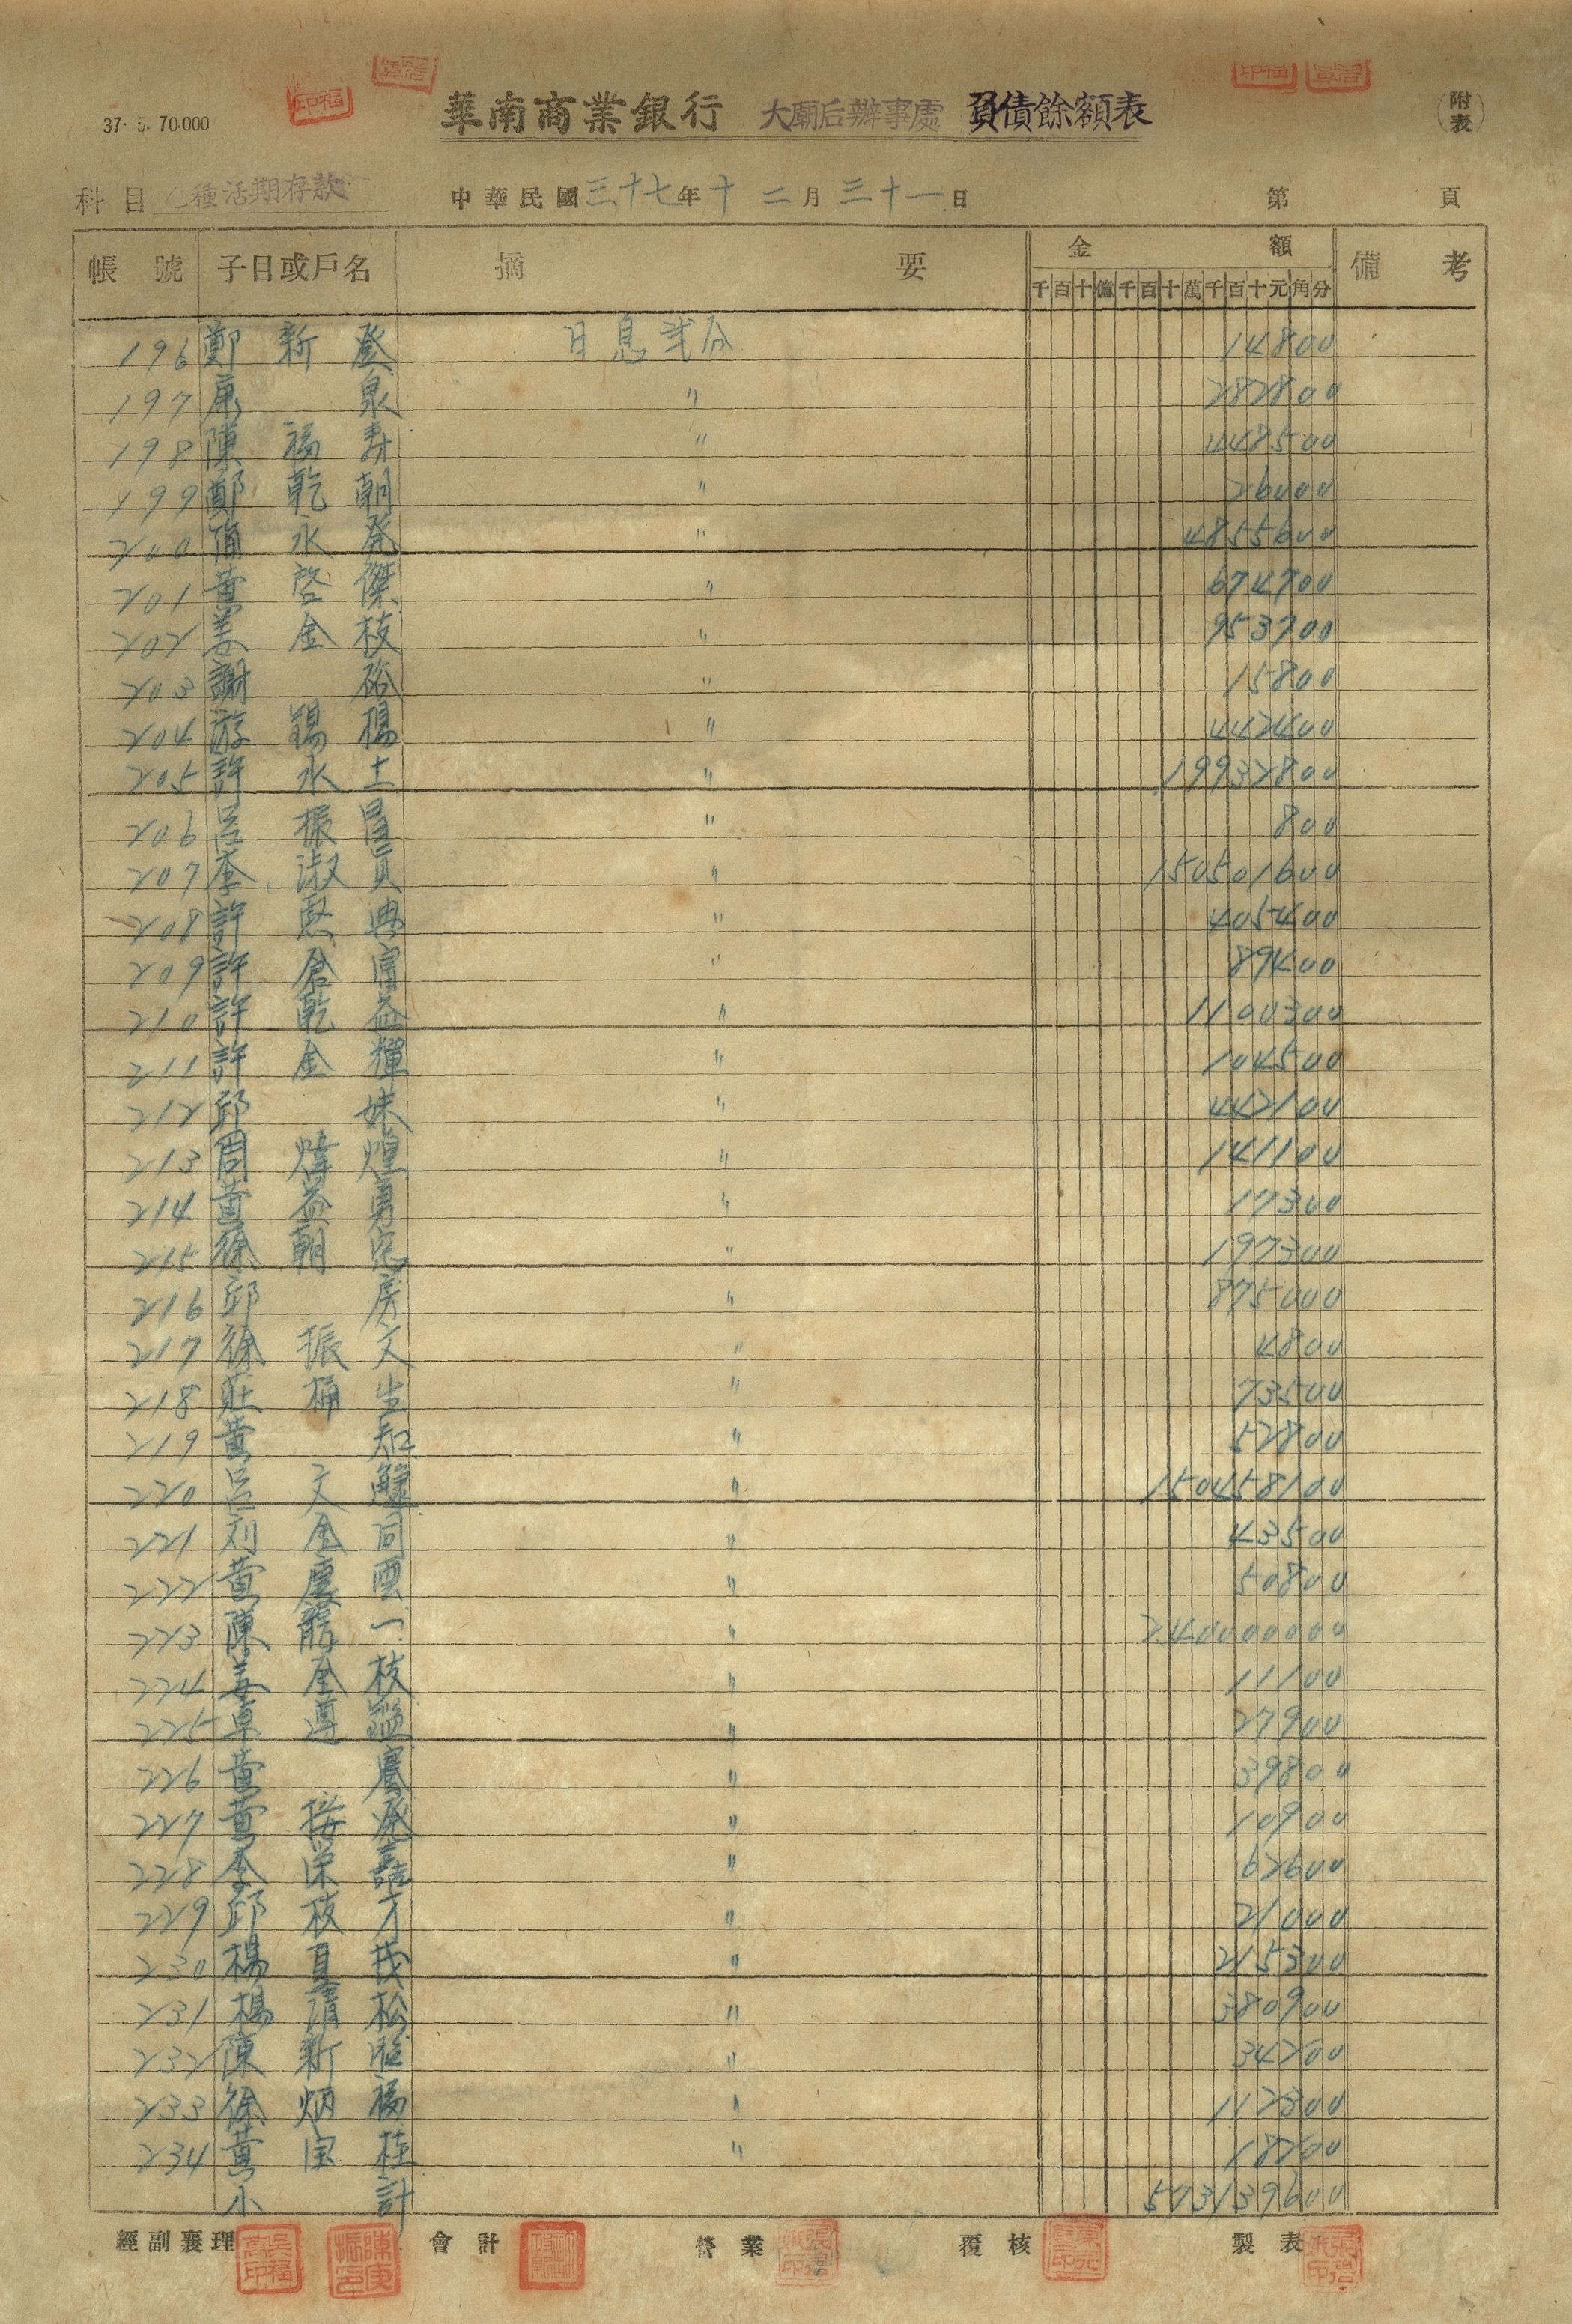 37. 5. 70.000
華南商業銀行 大廟后辦事處 負債餘額表
(附表)
科目 乙種活期存款 中華民國三十七年十二月三十一日 第 頁
帳號 子目或戶名 摘要 金額 備考
千百十億千百十萬千百十元角分
196 鄭新登 日息弍分 14800
197 康泉 〃 282800
198 陳福寿 〃 448500
199 鄭乾朝 〃 26000
200 簡永発 〃 4855600
201 黄啓傑 〃 674700
202 姜金枝 〃 953700
203 謝裕 〃 15800
204 游錫楊 〃 442400
205 許水土 〃 19932800
206 呂振昌 〃 800
207 李淑貞 〃 150501600
208 許典 〃 405400
209 許倉富 〃 89400
210 許乾益 〃 1100300
211 許金輝 〃 104500
212 邱妹 〃 442100
213 周煒煌 〃 141100
214 黄益勇 〃 17300
215 徐朝 〃 197300
216 邱房 〃 875000
217 徐振文 〃 4800
218 莊桶生 〃 73500
219 黄知 〃 52800
220 呂文 〃 150458100
221 刘金同 〃 43500
222 黄慶雲 〃 50800
223 陳龍一 〃 240000000
224 姜金枝 〃 11100
225 卓遵 〃 27900
226 黄 〃 39800
227 黄接発 〃 10900
228 李栄 〃 62600
229 邱枝才 〃 21000
230 楊茂 〃 215300
231 楊清松 〃 380900
232 陳新 〃 34200
233 徐炳福 〃 112300
234 黄宝桂 〃 18200
小計 573139600
經副襄理 會計 營業 覆核 製表